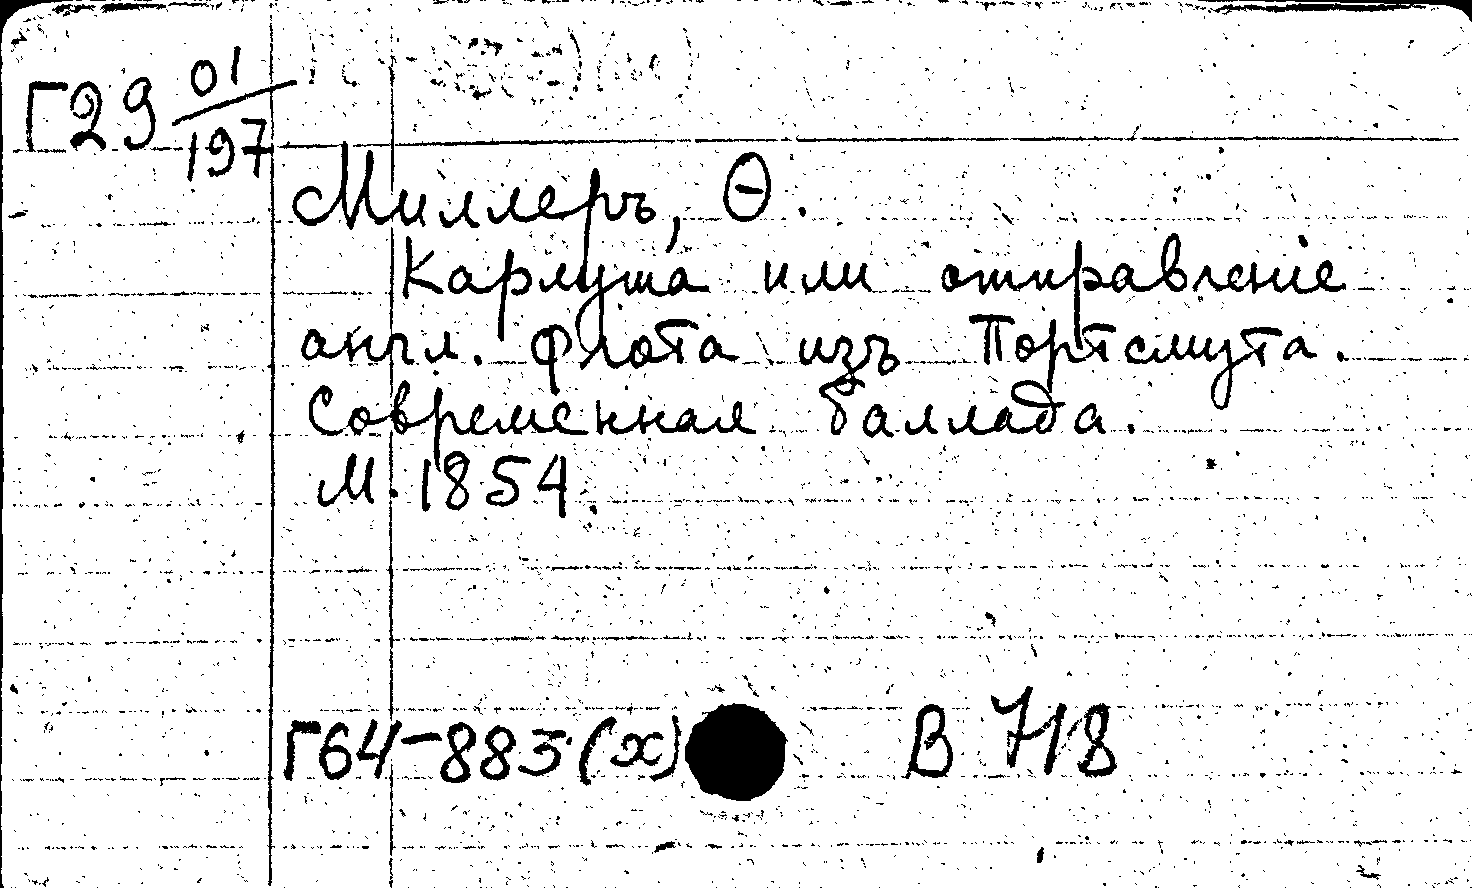 Г29 01/197
Миллеръ, Ѳ.
Карлуша или отправленіе
англ. флота изъ Портсмута.
Современная баллада.
М. 1854.
Г64-883(х) В 718